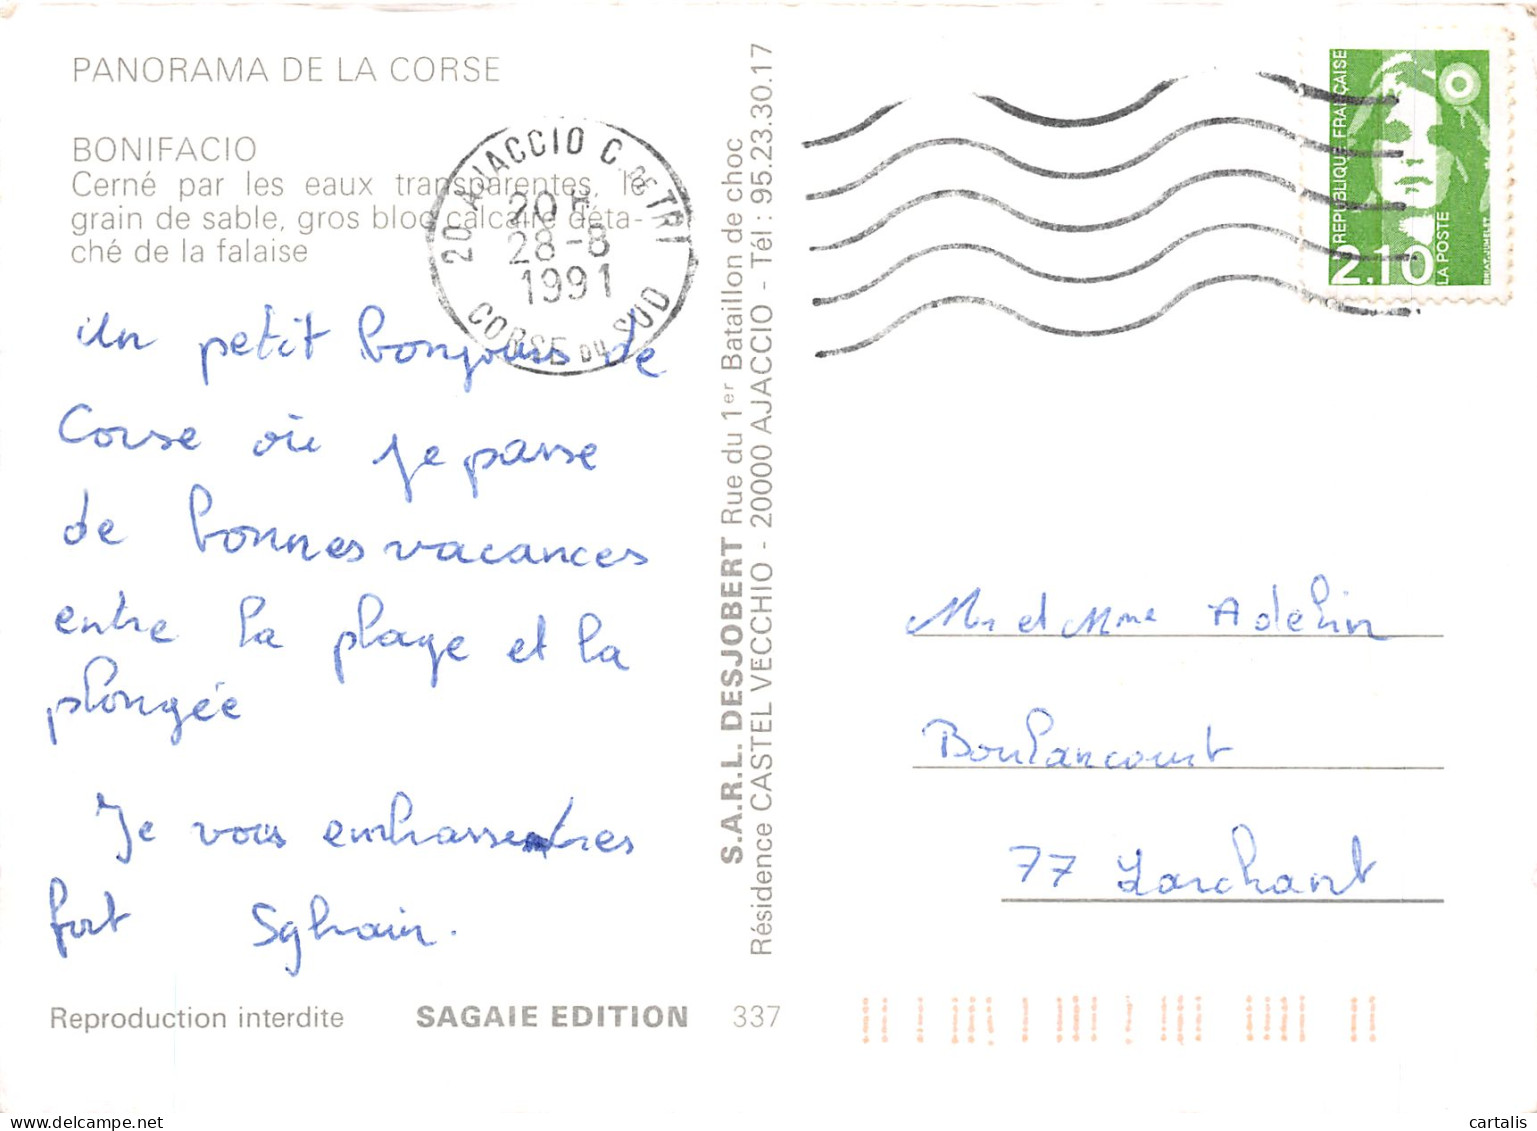 PANORAMA DE LA CORSE
BONIFACIO
Cerné par les eaux transparentes, le
grain de sable, gros bloc calcaire déta-
ché de la falaise
20 AJACCIO C. DE TRI
20 H
28-8
1991
CORSE DU SUD
Un petit bonjour de
Corse où je passe
de bonnes vacances
entre la plage et la
plongée
Je vous embrasse très
fort Sylvain.
Reproduction interdite SAGAIE EDITION 337
S.A.R.L. DESJOBERT Rue du 1er Bataillon de choc
Résidence CASTEL VECCHIO - 20000 AJACCIO - Tél : 95.23.30.17
REPUBLIQUE FRANÇAISE
2,10
LA POSTE
Mr et Mme Adelin
Boulancourt
77 Larchant
cartalis